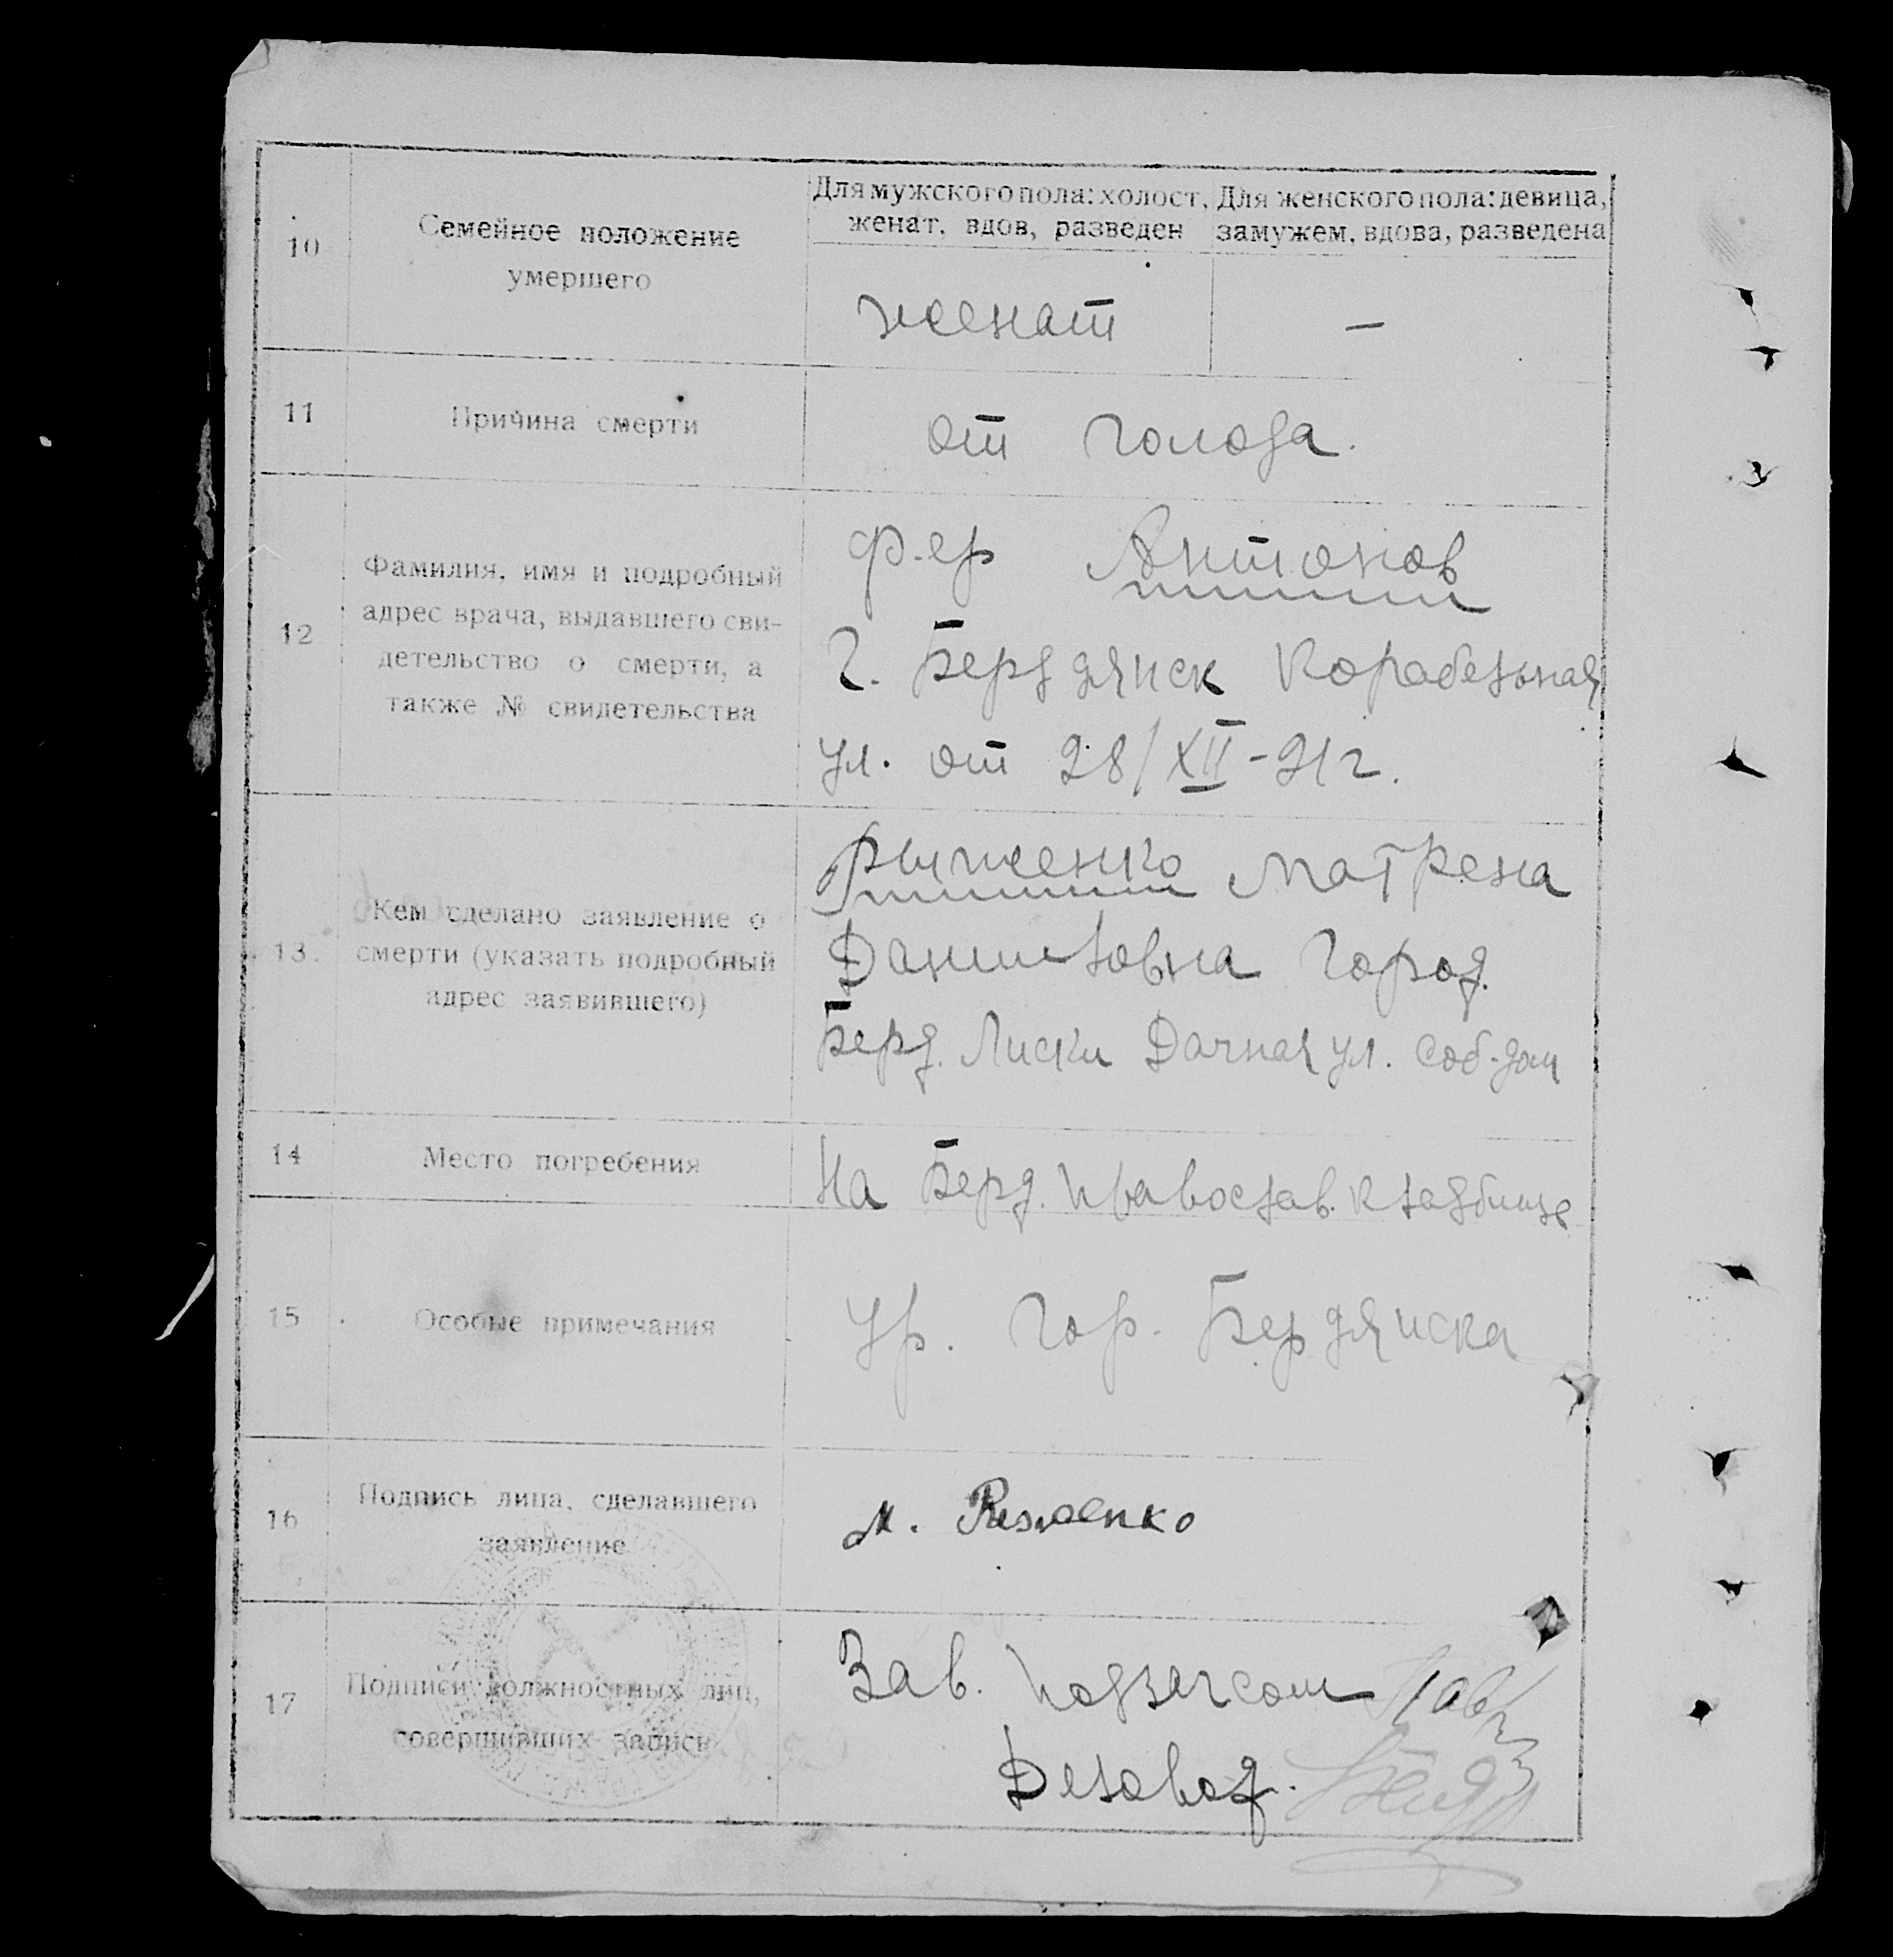 10
Семейное положение
умершего
Для мужского пола: холост,
женат, вдов, разведен
Для женского пола: девица,
замужем, вдова, разведена
женат
—
11
Причина смерти
от голода.
12
Фамилия, имя и подробный
адрес врача, выдавшего сви-
детельство о смерти, а
также № свидетельства
ф-ер Антонов
г. Бердянск Корабельная
ул. от 28/XII-21г.
13.
Кем сделано заявление о
смерти (указать подробный
адрес заявившего)
Рыженко Матрена
Даниловна город.
Берд. Лиски Дачная ул. соб-дом
14
Место погребения
На Берд. Православ. кладбище
15
Особые примечания
Ур. гор. Бердянска
16
Подпись лица, сделавшего
заявление
М.
17
Подписи должностных лиц,
совершивших запись
Зав. Подзагсом
Деловод.